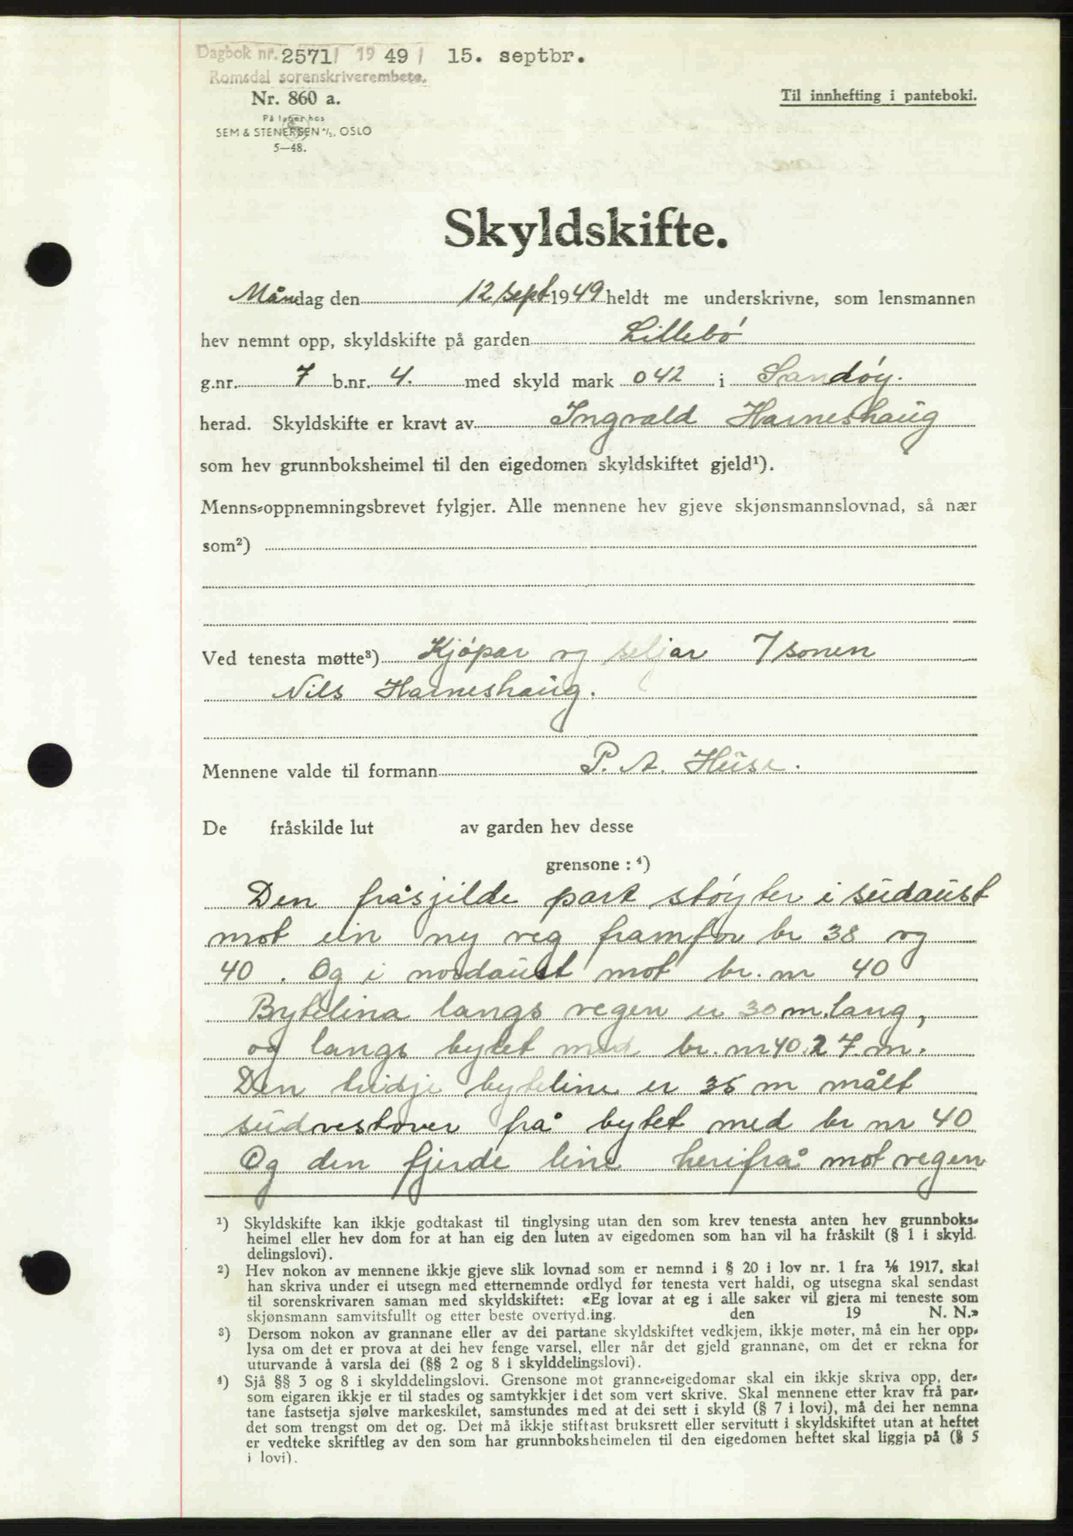 Dagbok nr. 2571/ 1949/ 15. septbr.
Romsdal sorenskriverembete.
Nr. 860 a.
Til innhefting i panteboki.
På lager hos
SEM & STENERSEN A/S, OSLO
5—48.
Skyldskifte.
Måndag den 12 sept 1949 heldt me underskrivne, som lensmannen
hev nemnt opp, skyldskifte på garden Lillebó
g.nr. 7 b.nr. 4. med skyld mark 042 i Sandóy.
herad. Skyldskifte er kravt av Ingvald Harneshaug
som hev grunnboksheimel til den eigedomen skyldskiftet gjeld¹).
Menns-oppnemningsbrevet fylgjer. Alle mennene hev gjeve skjønsmannslovnad, så nær
som²)
Ved tenesta møtte³) Kjópar og seljar
Nils Harneshaug.
Mennene valde til formann P. A. Huse.
De fråskilde lut av garden hev desse
grensone : ⁴)
Den fråsjilde part stóyter i sudaust
mot ein ny veg framfor br 38 og
40 . Og i nordaust mot br. nr 40
Bytelina langs vegen er 30 m. lang,
og langs bytet med br. nr 40. 27 m.
Den tridje byteline er 35 m målt
sudvestover frå bytet med br nr 40
Og den fjerde line herifrå mot vegen
¹) Skyldskifte kan ikkje godtakast til tinglysing utan den som krev tenesta anten hev grunnboks-
heimel eller hev dom for at han eig den luten av eigedomen som han vil ha fråskilt (§ 1 i skyld
delingslovi).
²) Hev nokon av mennene ikkje gjeve slik lovnad som er nemnd i § 20 i lov nr. 1 fra 1/6 1917, skal
han skriva under ei utsegn med etternemnde ordlyd før tenesta vert haldi, og utsegna skal sendast
til sorenskrivaren saman med skyldskiftet: «Eg lovar at eg i alle saker vil gjera mi teneste som
skjønsmann samvitsfullt og etter beste overtyd.ing. den 19 N. N.»
³) Dersom nokon av grannane eller av dei partane skyldskiftet vedkjem, ikkje møter, må ein her opp-
lysa om det er prova at dei hev fenge varsel, eller når det gjeld grannane, om det er rekna for
uturvande å varsla dei (§§ 2 og 8 i skylddelingslovi).
⁴) Sjå §§ 3 og 8 i skylddelingslovi. Grensone mot granne-eigedomar skal ein ikkje skriva opp, der-
som eigaren ikkje er til stades og samtykkjer i det som vert skrive. Skal mennene etter krav frå par-
tane fastsetja sjølve markeskilet, samstundes med at dei sett i skyld (§ 7 i lovi), må dei her nemna
det som trengst om det og. Det må ikkje stiftast bruksrett eller servitutt i skyldskiftet utan at heftet
er vedteke skriftleg av den som har grunnboksheimelen til den eigedomen heftet skal liggja på (§ 5
i lovi).